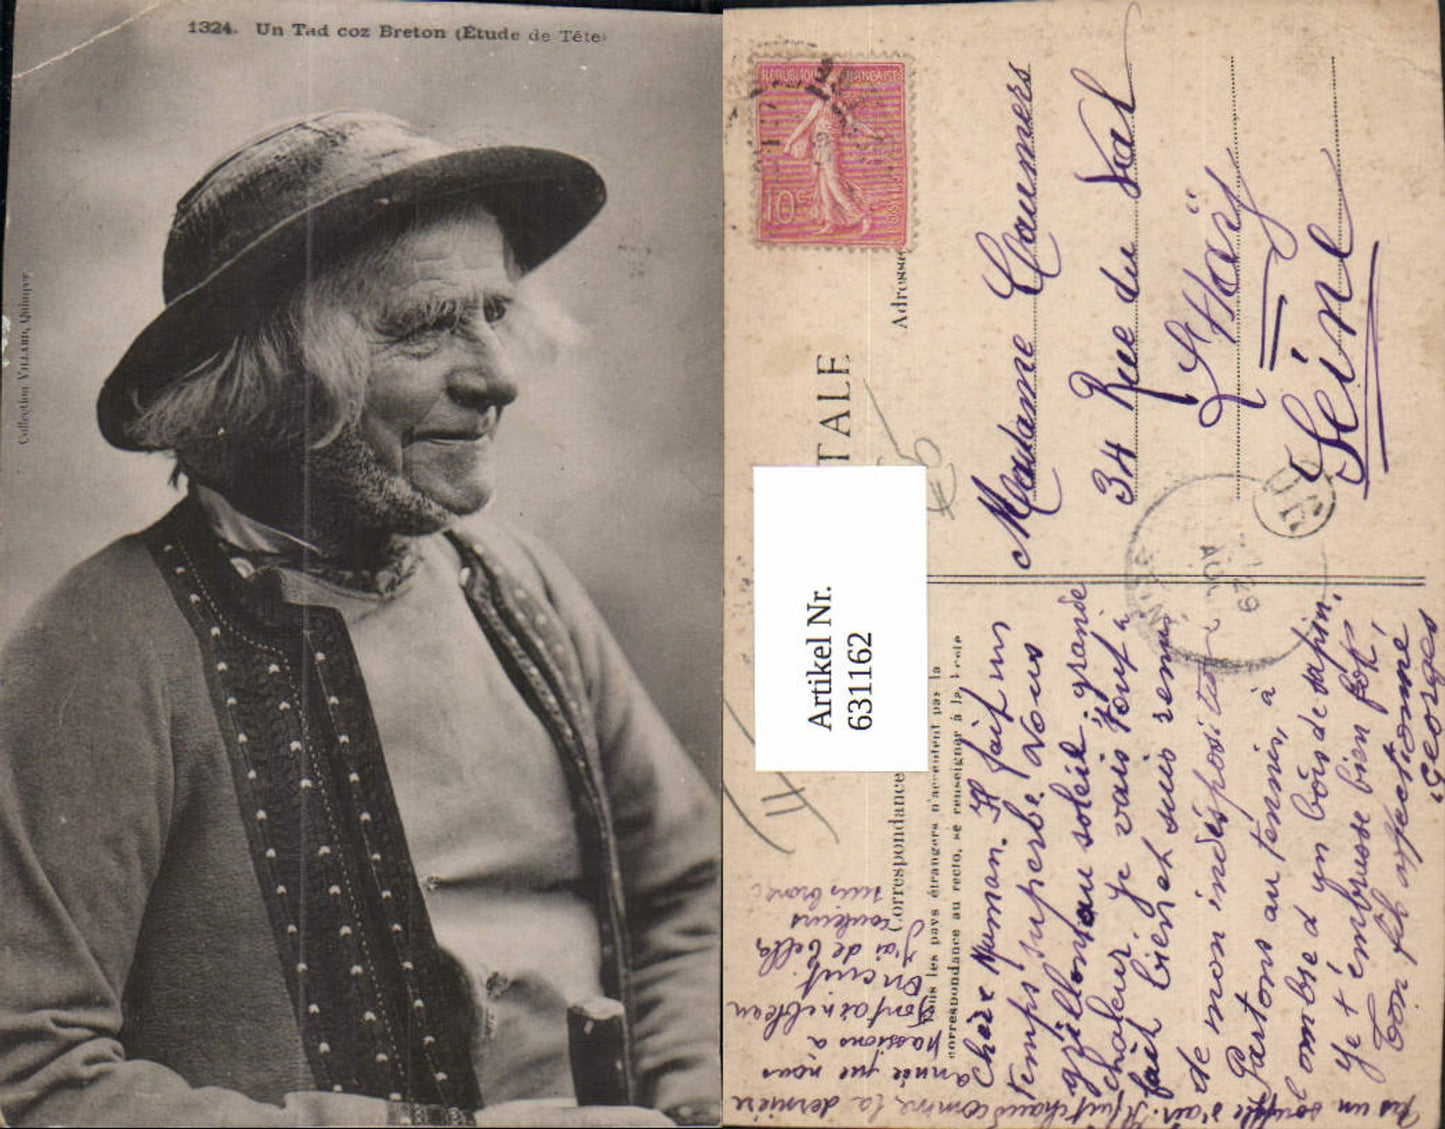 1324. Un Tad coz Breton (Étude de Tête)
Collection VILLARD, Quimper
REPUBLIQUE FRANÇAISE
10c
POSTES
TALE
Adresse
Artikel Nr.
631162
Correspondance
Tous les pays étrangers n'acceptent pas la
correspondance au recto, se renseigner à la Poste
Madame Caumers
34 Rue du Val
L'Haÿ
Seine
Chère Maman. Il fait un
temps superbe. Nous
grillons au soleil; grande
chaleur. Je vais tout à
fait bien et suis remis
de mon indisposition
Partons au tennis, à
l'ombre d'un bois de sapin.
Je t'embrasse bien fort,
Ton fils affectionné
Georges
Pas un souffle d'air. Il fait chaud comme la dernière
année que nous
passions à
Fontainebleau
On cuit.
J'ai de belles
couleurs
suis bronzé